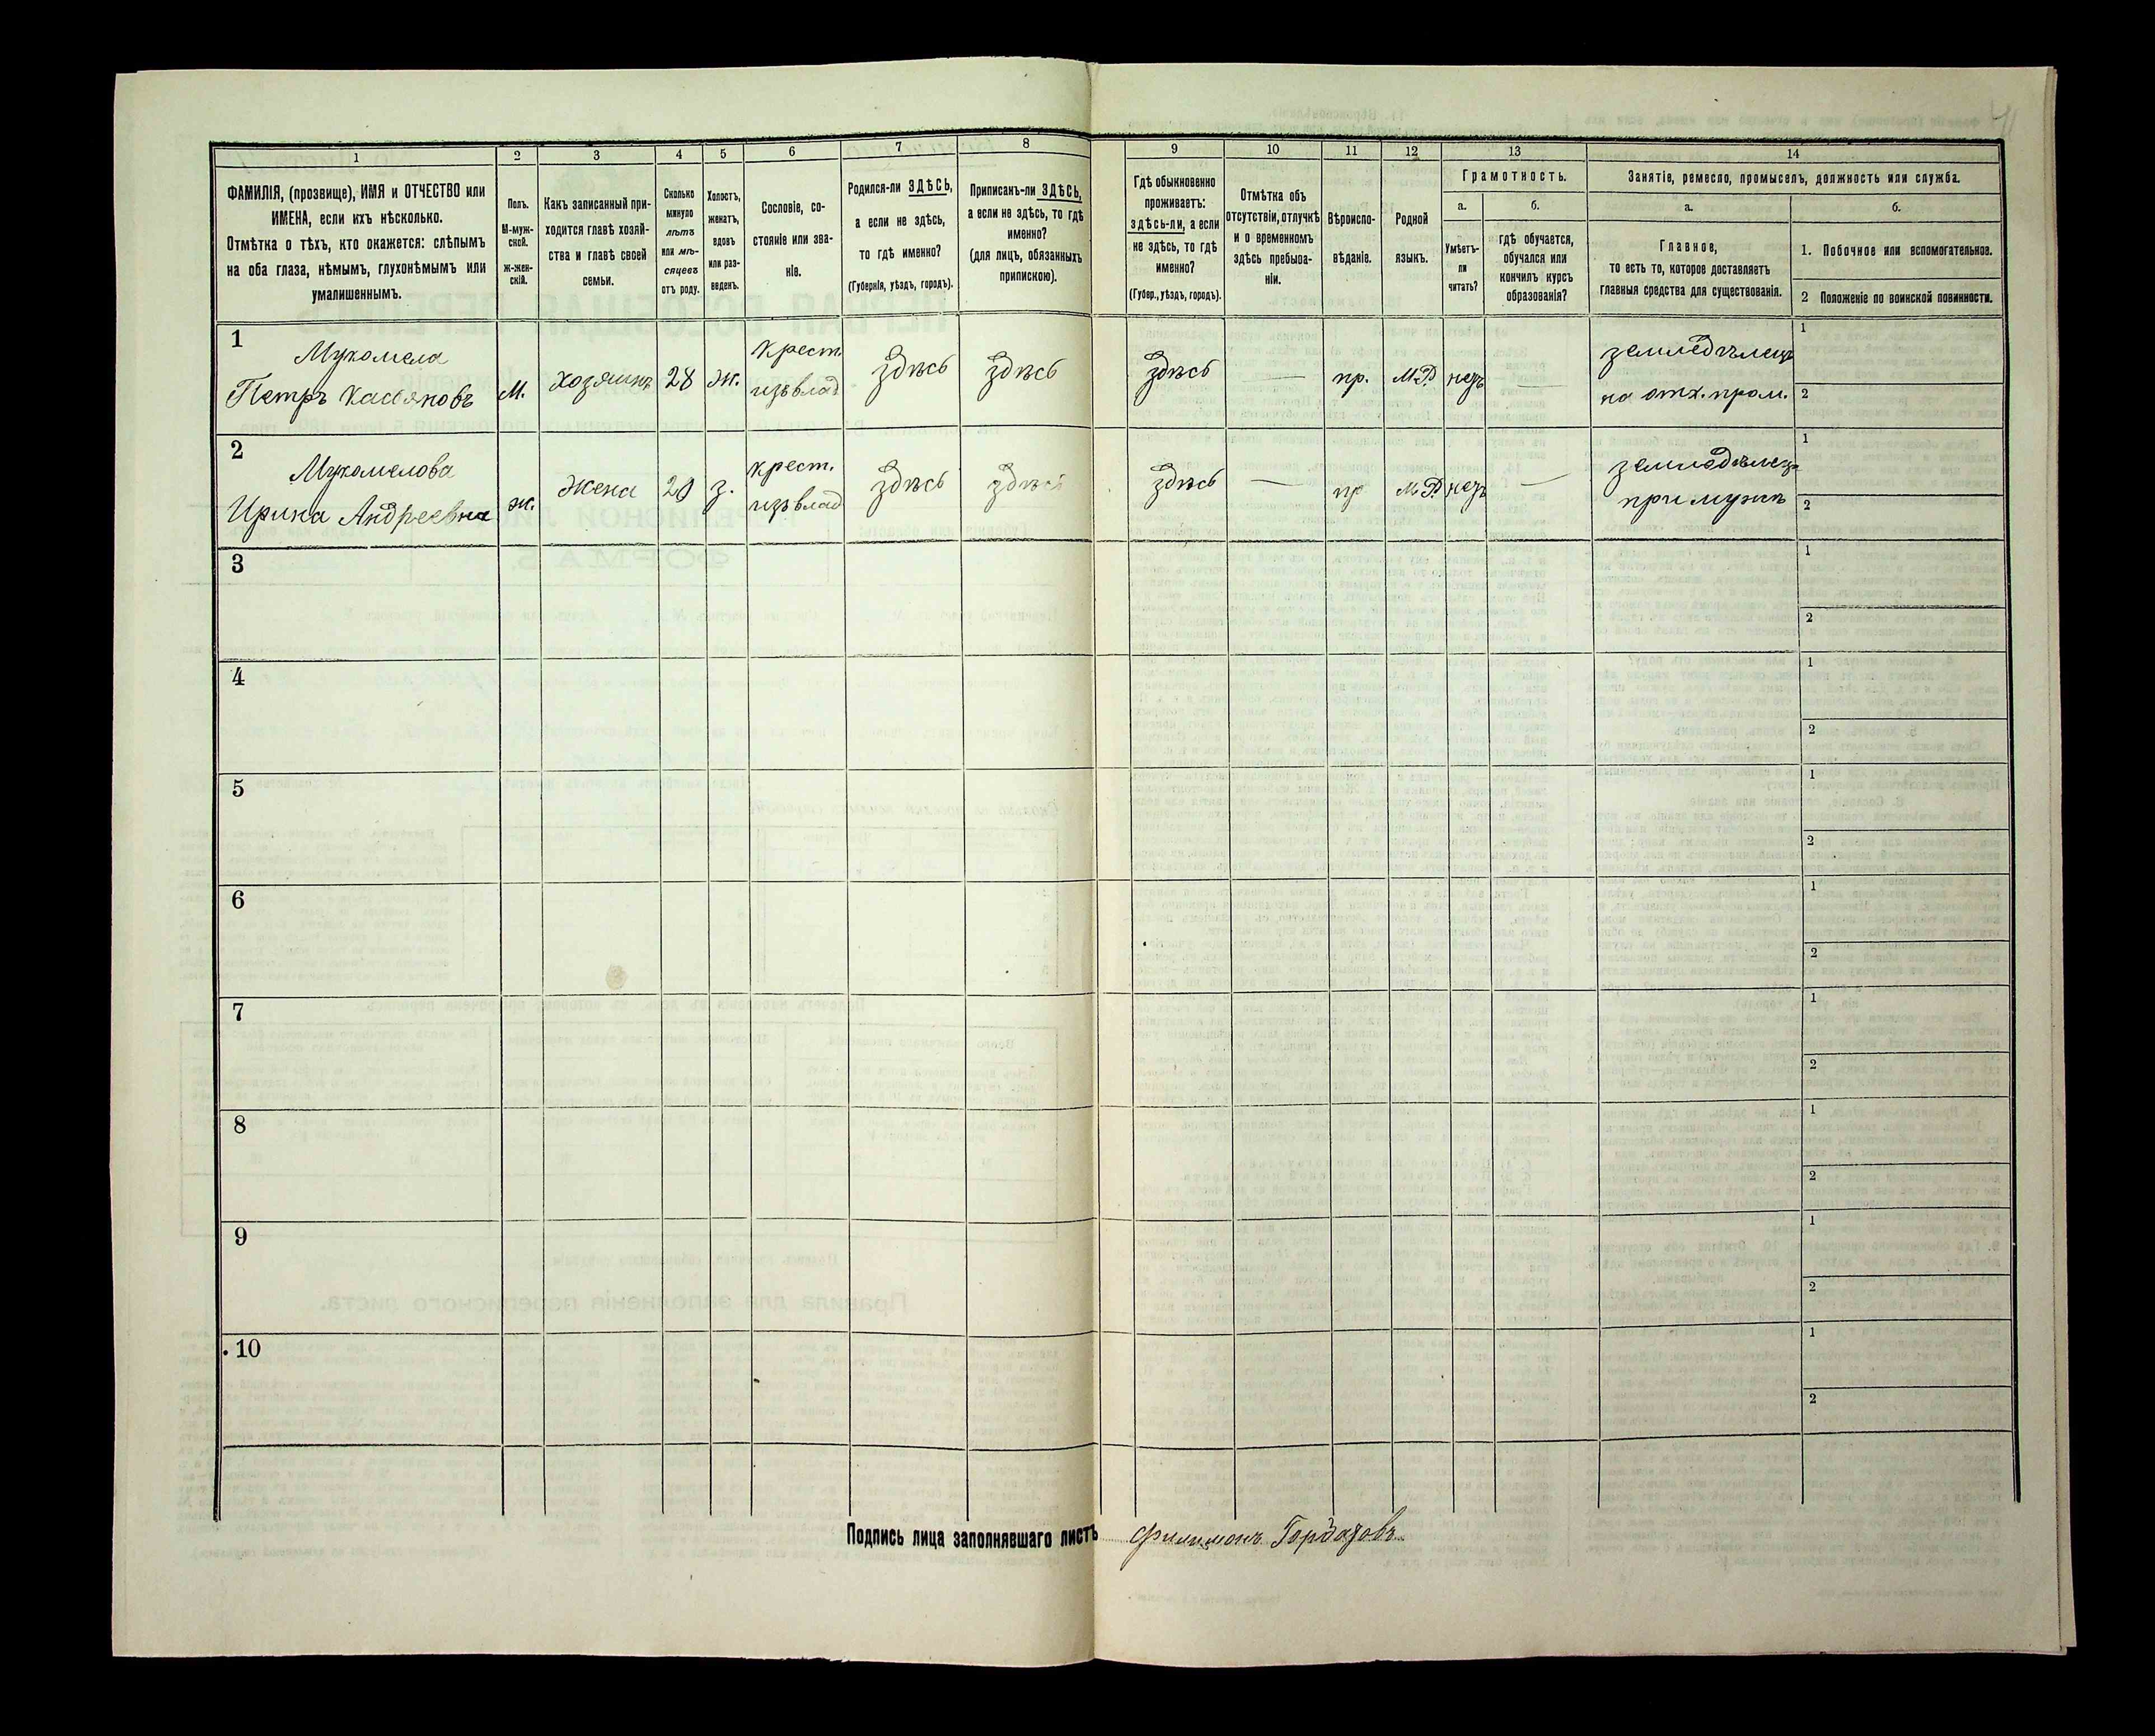 1 2 3 4 5 6 7 8 9 10 11 12 13 14
ФАМИЛІЯ, (прозвище), ИМЯ и ОТЧЕСТВО или
ИМЕНА, если ихъ нѣсколько.
Отмѣтка о тѣхъ, кто окажется: слѣпымъ
на оба глаза, нѣмымъ, глухонѣмымъ или
умалишеннымъ.
Полъ.
М-муж-
ской.
ж-жен-
скій.
Какъ записанный при-
ходится главѣ хозяй-
ства и главѣ своей
семьи.
Сколько
минуло
лѣтъ
или мѣ-
сяцевъ
отъ роду.
Холостъ,
женатъ,
вдовъ
или раз-
веденъ.
Сословіе, со-
стояніе или зва-
ніе.
Родился-ли ЗДѢСЬ,
а если не здѣсь,
то гдѣ именно?
(Губернія, уѣздъ, городъ).
Приписанъ-ли ЗДѢСЬ,
а если не здѣсь, то гдѣ
именно?
(для лицъ, обязанныхъ
припискою).
Гдѣ обыкновенно
проживаетъ:
здѣсь-ли, а если
не здѣсь, то гдѣ
именно?
(Губер., уѣздъ, городъ).
Отмѣтка объ
отсутствіи, отлучкѣ
и о временномъ
здѣсь пребыва-
ніи.
Вѣроиспо-
вѣданіе.
Родной
языкъ.
Грамотность.
а.
Умѣетъ-
ли
читать?
б.
гдѣ обучается,
обучался или
кончилъ курсъ
образованія?
Занятіе, ремесло, промыселъ, должность или служба.
а.
Главное,
то есть то, которое доставляетъ
главныя средства для существованія.
б.
1. Побочное или вспомогательное.
2 Положеніе по воинской повинности.
1
Мукомела
Петръ Касьяновъ
М.
хозяинъ
28
ж.
крест.
изъ влад
здѣсь
здѣсь
здѣсь
—
пр.
М.Р.
нетъ
—
земледѣлецъ
на отх. пром.
1
2
2
Мукомелова
Ирина Андреевна
ж.
жена
20
з.
крест.
изъ влад
здѣсь
здѣсь
здѣсь
—
пр
М.Р.
нетъ
—
земледѣлец
при мужѣ
1
2
3
1
2
4
1
2
5
1
2
6
1
2
7
1
2
8
1
2
9
1
2
10
1
2
Подпись лица заполнявшаго листъ Филимонъ